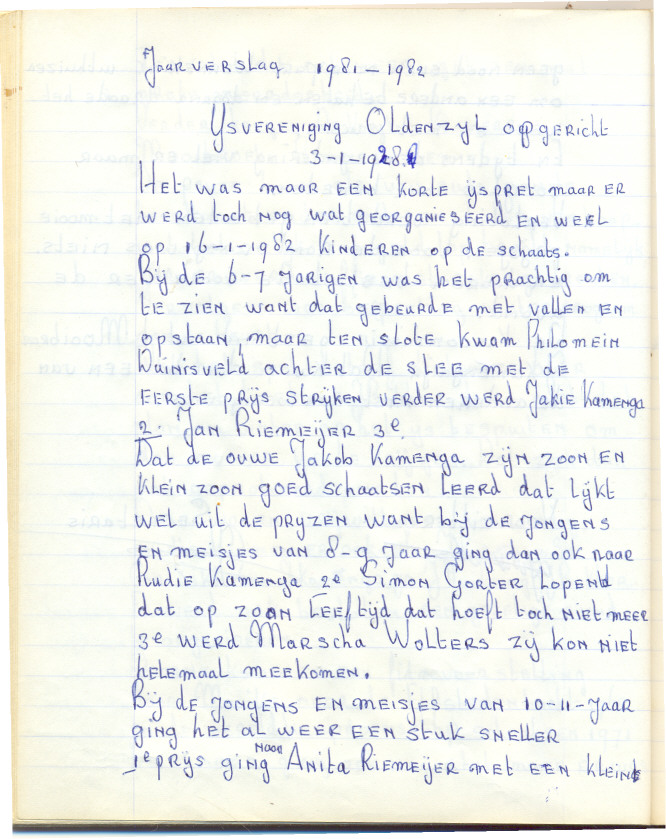 Jaarverslag 1981-1982
Ysvereniging Oldenzyl opgericht
3-1-1928
Het was maar een korte ijspret maar er
werd toch nog wat georganieseerd en wel
op 16-1-1982 kinderen op de schaats.
Bij de 6-7 jarigen was het prachtig om
te zien want dat gebeurde met vallen en
opstaan, maar ten slote kwam Philomein
Duinisveld achter de slee met de
eerste prijs strijken verder werd Jakie Kamenga
2 Jan Riemeijer 3e.
Dat de ouwe Jakob Kamenga zijn zoon en
klein zoon goed schaatsen leerd dat lijkt
wel uit de pryzen want bij de jongens
en meisjes van 8-9 jaar ging dan ook naar
Rudie Kamenga 2e Simon Gorter lopend
dat op zoon leeftijd dat hoeft toch niet meer
3e werd Marscha Wolters zij kon niet
helemaal meekomen.
Bij de jongens en meisjes van 10-11-jaar
ging het al weer een stuk sneller
1e prijs ging naar Anita Riemeijer met een klein